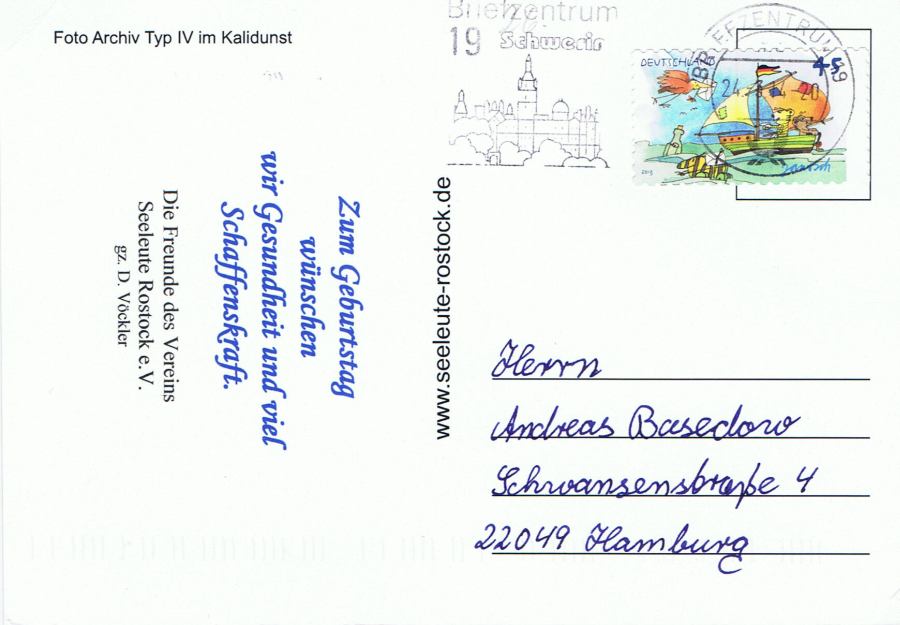 Foto Archiv Typ IV im Kalidunst
Zum Geburtstag
wünschen
wir Gesundheit und viel
Schaffenskraft.
Die Freunde des Vereins
Seeleute Rostock e.V.
gz. D. Vöckler
www.seeleute-rostock.de
Briefzentrum
19 Schwerin
DEUTSCHLAND 45
janosch
BRIEFZENTRUM 19
Herrn
Andreas Basedow
Schwansenstraße 4
22049 Hamburg